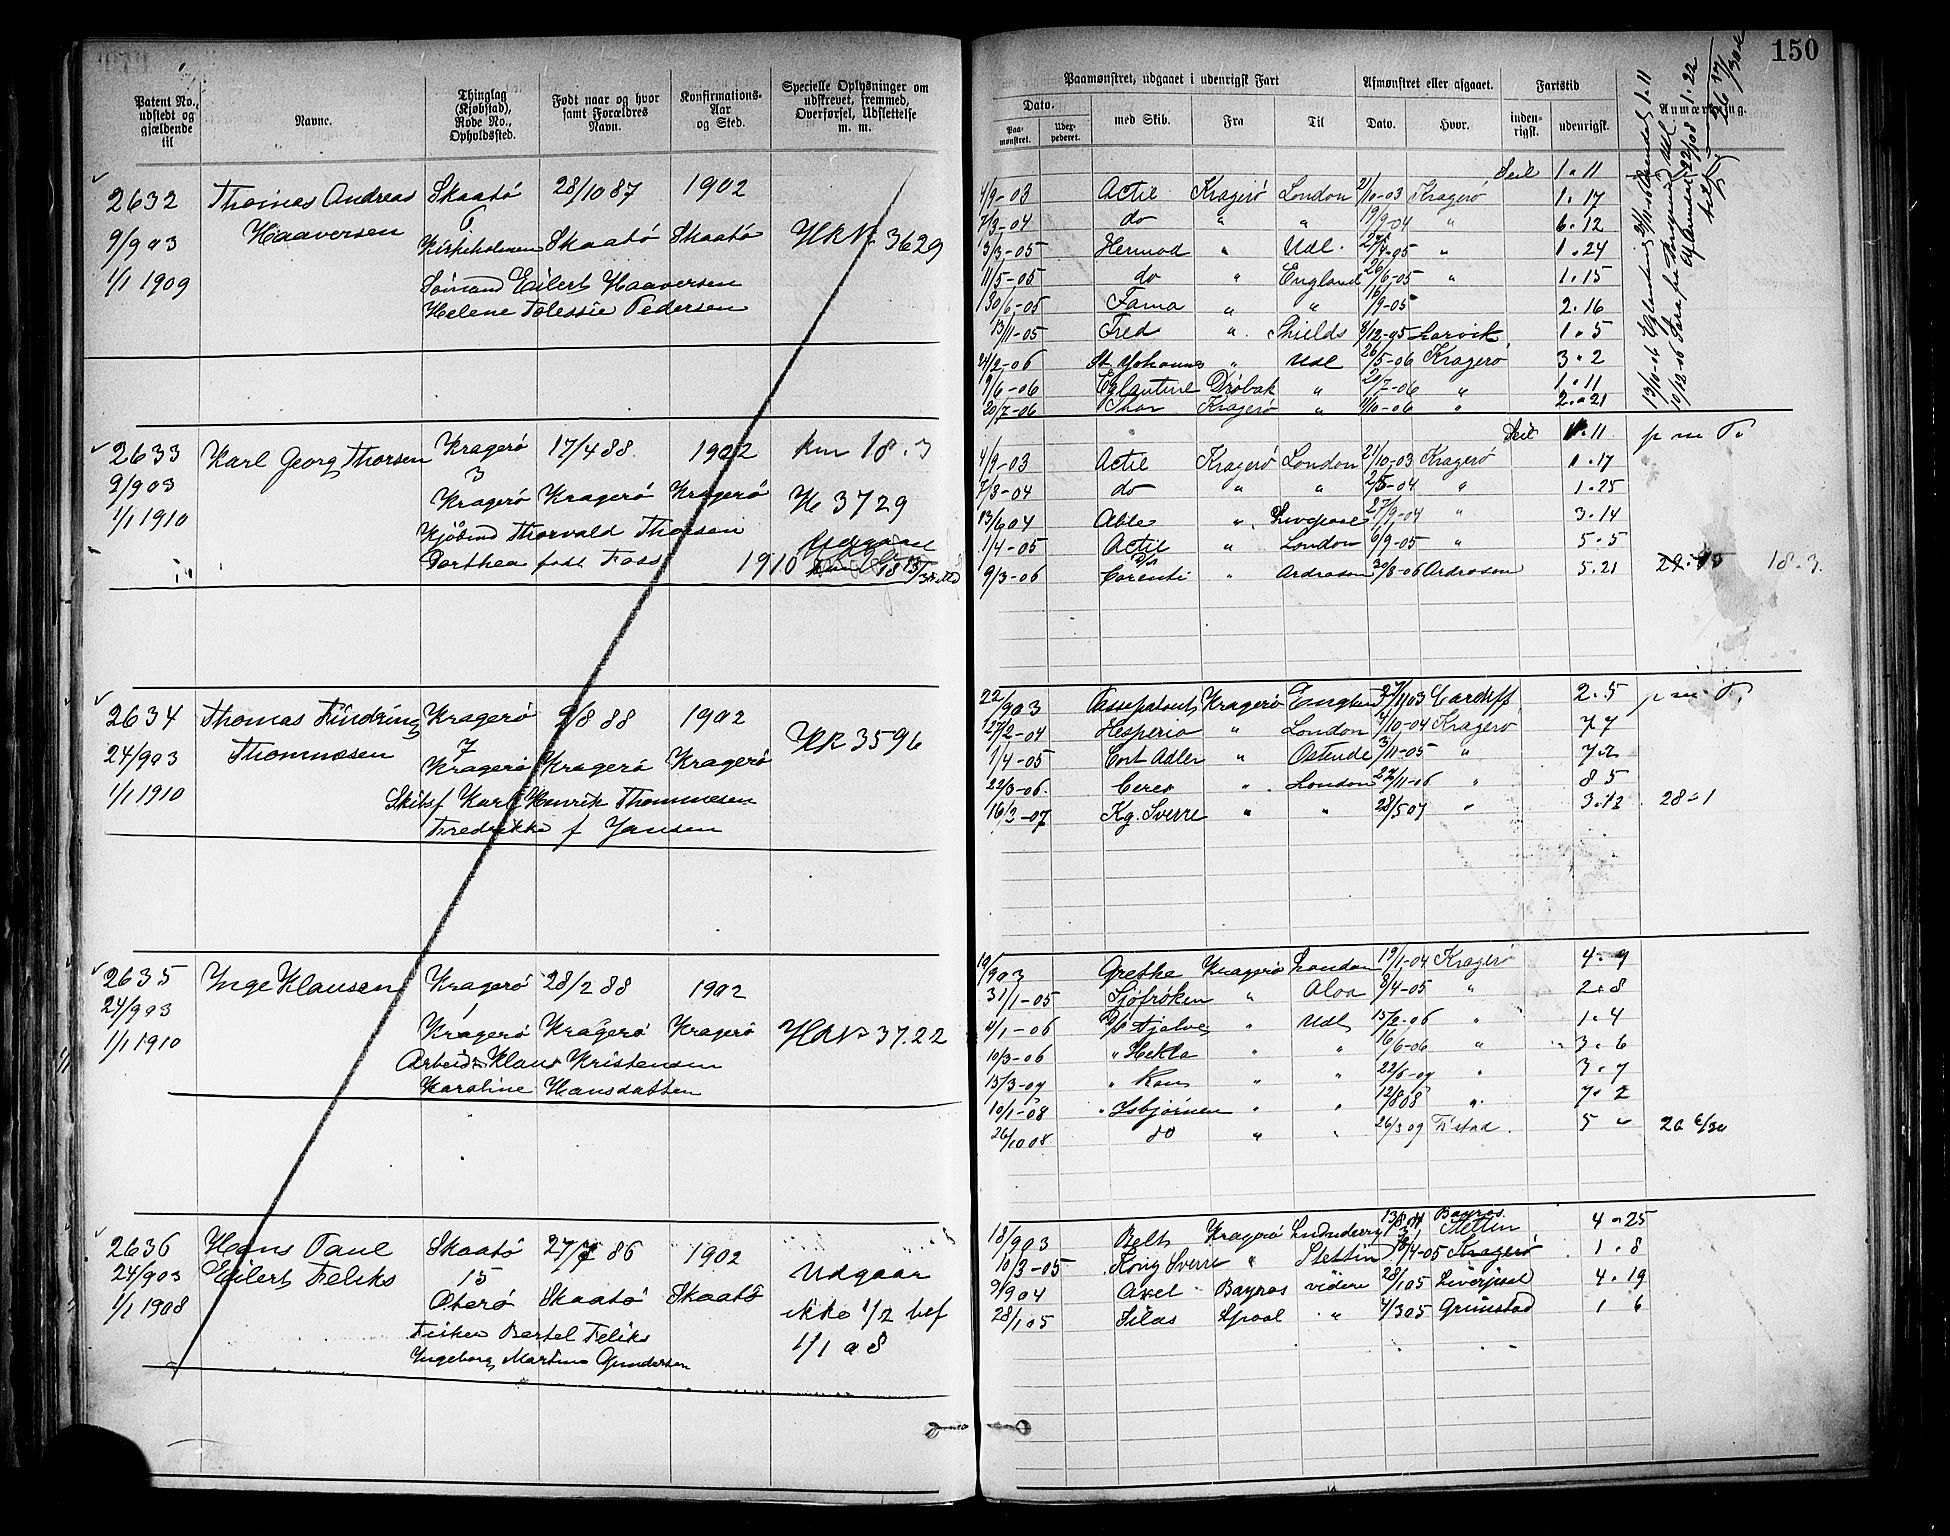 150
Patent No., udstedt og gjældende til
Navne.
Thinglag (Kjøbstad), Rode No., Opholdssted.
Født naar og hvor samt Forældres Navn.
Konfirmations-Aar og Sted.
Specielle Oplysninger om udskrevet, fremmed, Overførsel, Udslettelse m. m.
Paamønstret, udgaaet i udenrigsk Fart
Afmønstret eller afgaaet.
Fartstid
Anmærkning.
Dato.
Paa-mønstret.
Udex-pederet.
med Skib.
Fra
Til
Dato.
Hvor.
inden-rigsk.
udenrigsk.
2632 Thomas Andreas Skaatø 28/10 87 1902
9/903 Haaversen 6
Kirkeholmen Skaatø Skaatø HR No 3629
1/1 1909 Sømand Eilert Haaversen
Helene Tolessie Pedersen
Seil 1.11
4/9-03 Actil Kragerø London 21/10-03 Kragerø 1.17
7/3-04 do " " 19/9-04 " 6.12
13/3-05 Hermod " Udl. 27/4-05 " 1.24
11/5-05 do " England 26/6-05 " 1.15
30/6-05 Fama " " 16/9-05 2.16
13/11-05 Fred " Shields 8/12-05 Larvik 1.5
24/2-06 St. Johannes " Udl 26/5-06 Kragerø 3.2
9/6-06 Eglantine Drøbak " 20/7-06 " 1.11
20/7-06 Thor Kragerø " 11/10-06 " 2.21
2633 Karl Georg Thorsen Kragerø 17/4 88. 1902 km 18.3
9/903 3
Kragerø Kragerø Kragerø H 3729
1/1 1910 Kjøbmd Thorvald Thorsen
Dorthea født Foss 1910
Seil 1.11 p m T.
4/9-03 Actil Kragerø London 21/10-03 Kragerø 1.17
7/3-04 do " " 2/5-04 " 1.25
13/6 04 Able " Liverpool 27/9-04 " 3.14
1/4-05 Actil " London 6/9-05 " 5.5
9/3-06 Corenti " Ardrosan 30/8-06 Ardrosan 5.21 18.3.
2634 Thomas Findring Kragerø 9/8 88 1902
24/903 Thommesen 7
Kragerø Kragerø Kragerø HR 3596
1/1 1910 Skibsf Karl Henrik Thommesen
Fredrikke f Jansen
22/903 Passepatout Kragerø England Cardiff 2.5 p m T.
27/2-04 Hesperia " London 4/10-04 Kragerø 7 7
1/4-05 Cort Adler " Ostende 3/11-05 " 7.2
22/3-06. Ceres " London 27/11-06 " 8 5
16/3-07 Kg. Sverre " " 28/5 07 " 3.12 28-1
2635 Inge Klausen Kragerø 28/2 88 1902
24/903 1
1/1 1910 Kragerø Kragerø Kragerø HR No 3722
Arbeids. Klaus Kristensen
Karoline Hansdatter
19/903 Grethe Kragerø London 19/1-04 Kragerø 4.9
31/1-05 Sjøfrøken " Aloa 8/4-05 " 2.8
4/1-06 D/S Hjalve " Udl 15/2-06 " 1.4
10/3-06 " Hekla " " 16/6-06 " 3.6
13/3-07 " Kong " " 22/6-07 " 3.7
10/1-08 " Isbjørnen " " 12/8 08 " 7.2
26/10 08 do " " 26/3 09 F.stad. 5 " 26 6/30
2636 Hans Paul Skaatø 27/7 86 1902
24/903 Eilert Feliks 15 Udgaar
1/1 1908 Oterø Skaatø Skaatø ikke 1/2 bef
Fisker Bertel Feliks 1/1 08
Ingeborg Martine Gundersen
18/903 Belt Kragerø Bayros Stettin 4 " 25
10/3-05 Kong Sverre " Stettin 18/4-05 Kragerø 1.8
9/904 Axel Bayros videre 28/1 05 Liverpool 4.19
28/1 05 Silas Lpool " 4/3 05 Grimstad 1 6